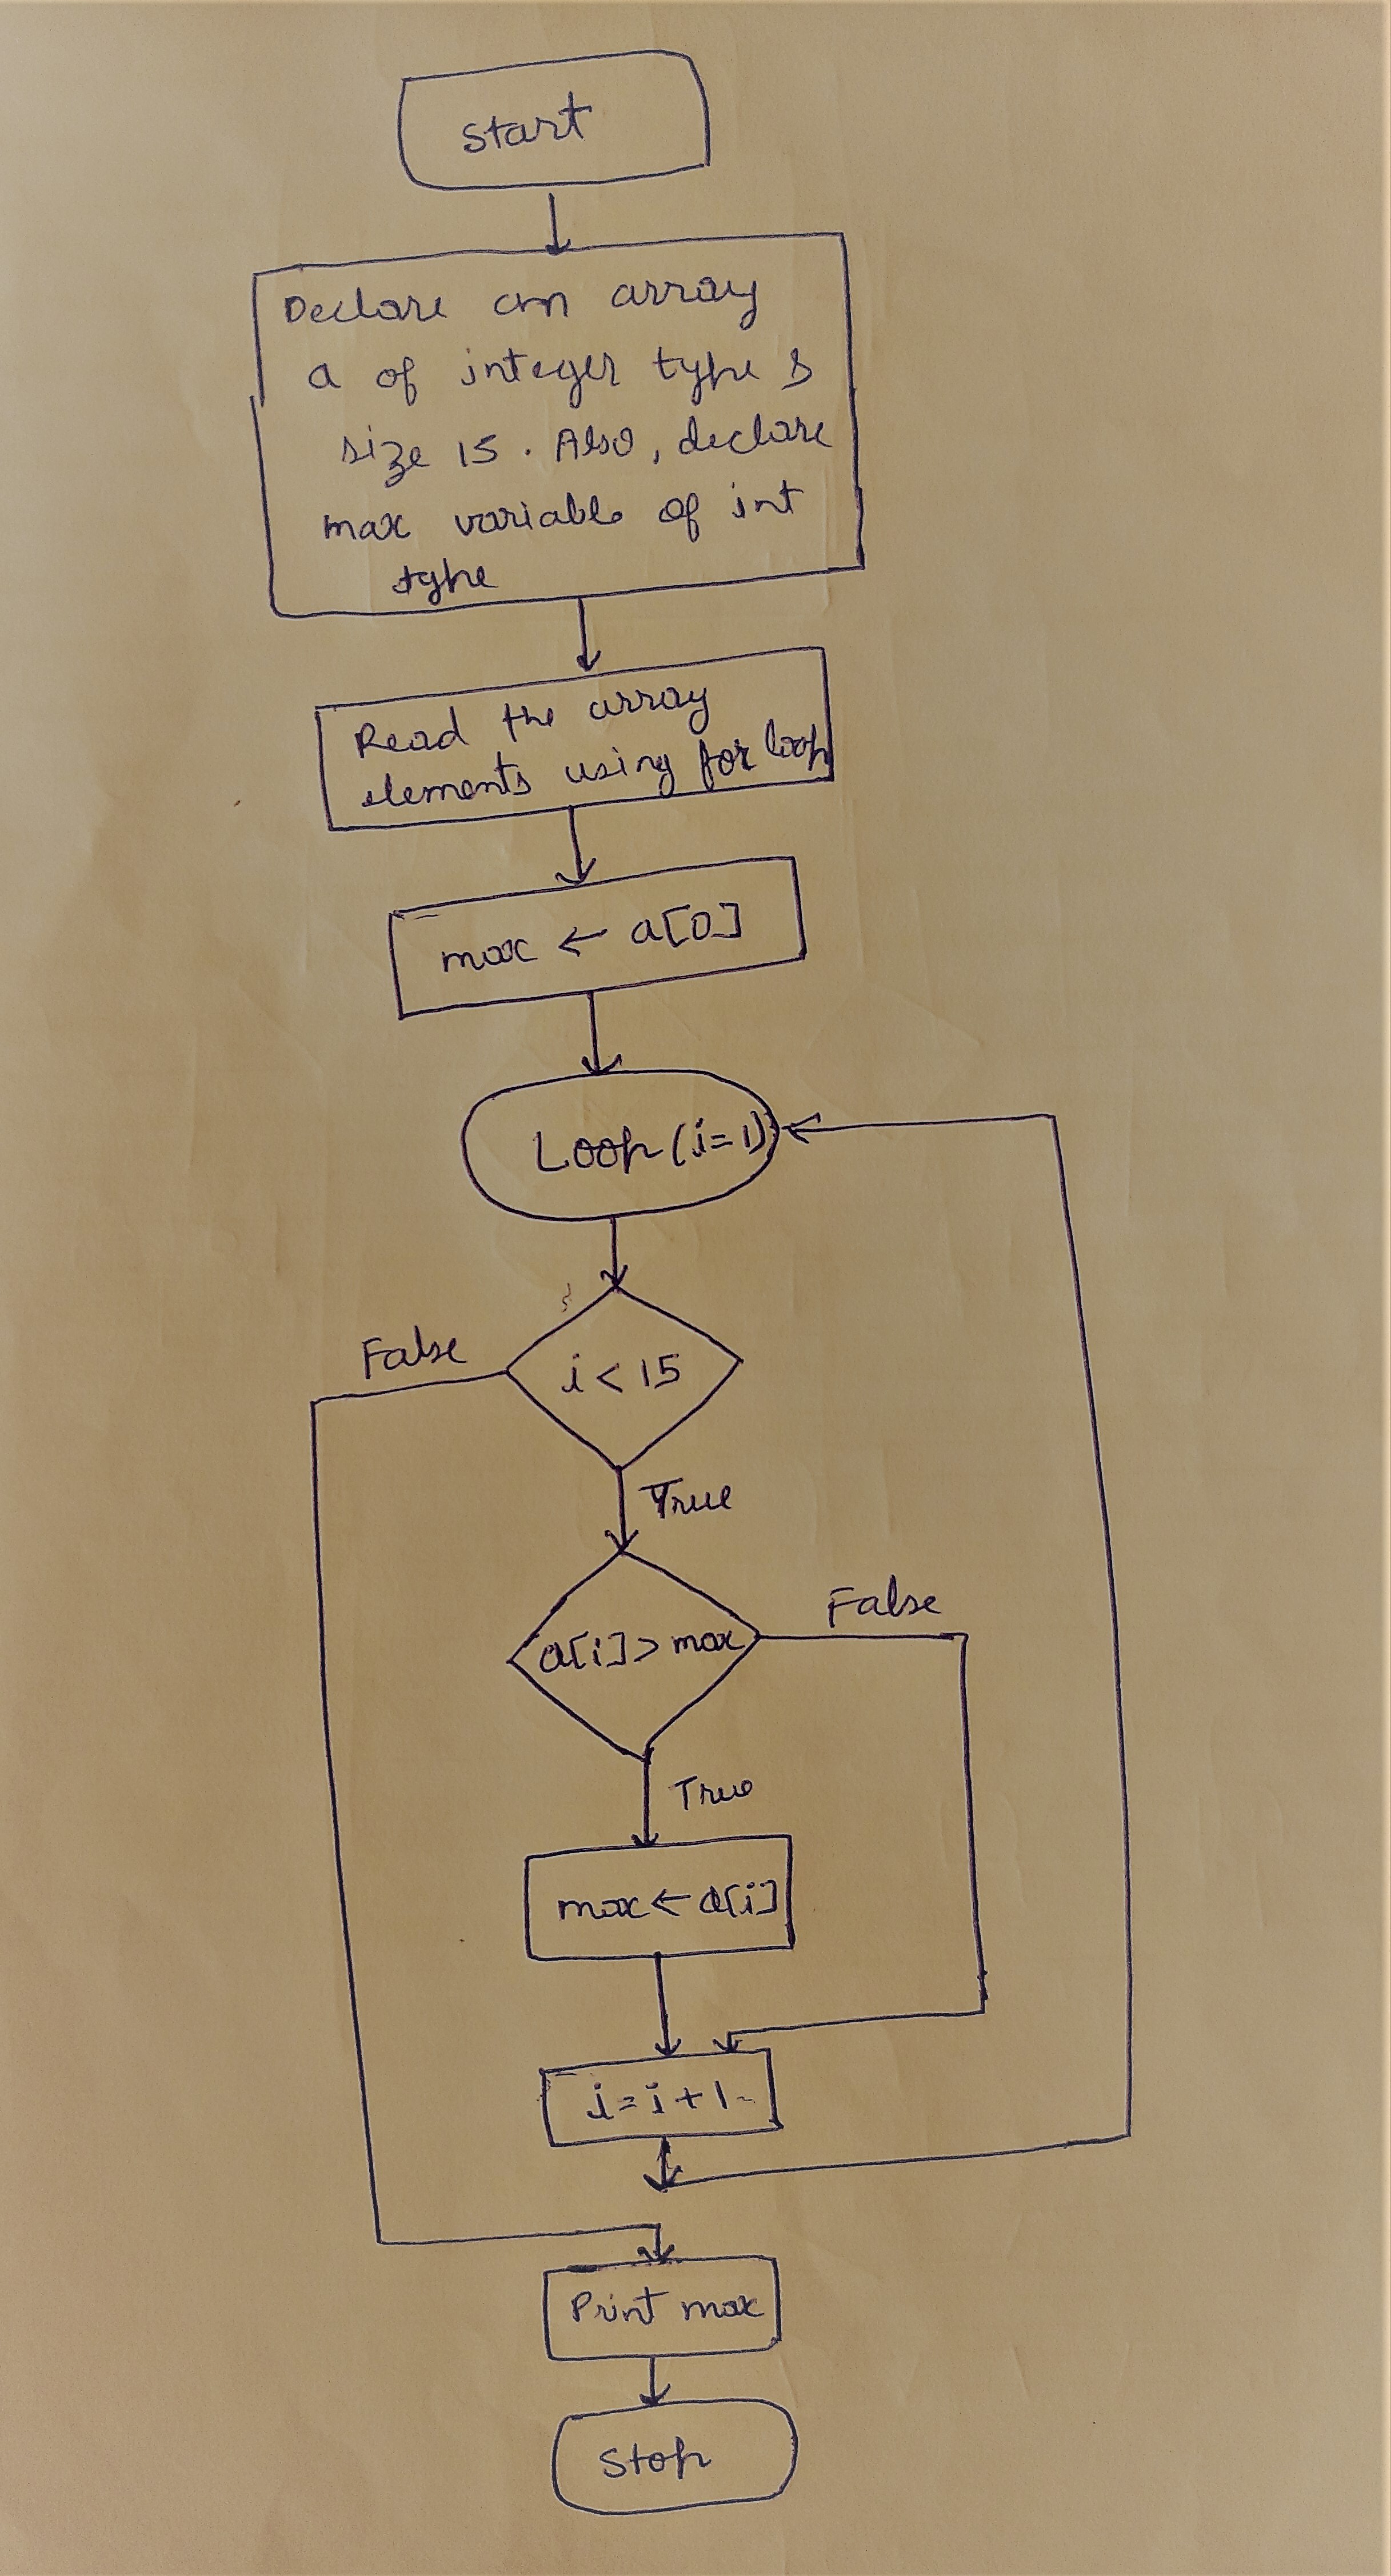 Start
Declare an array
a of integer type &
size 15. Also, declare
max variable of int
type
Read the array
elements using for loop
max ← a[0]
Loop (i=1)
i < 15
False
True
a[i] > max
False
True
max ← a[i]
i = i + 1
Print max
Stop